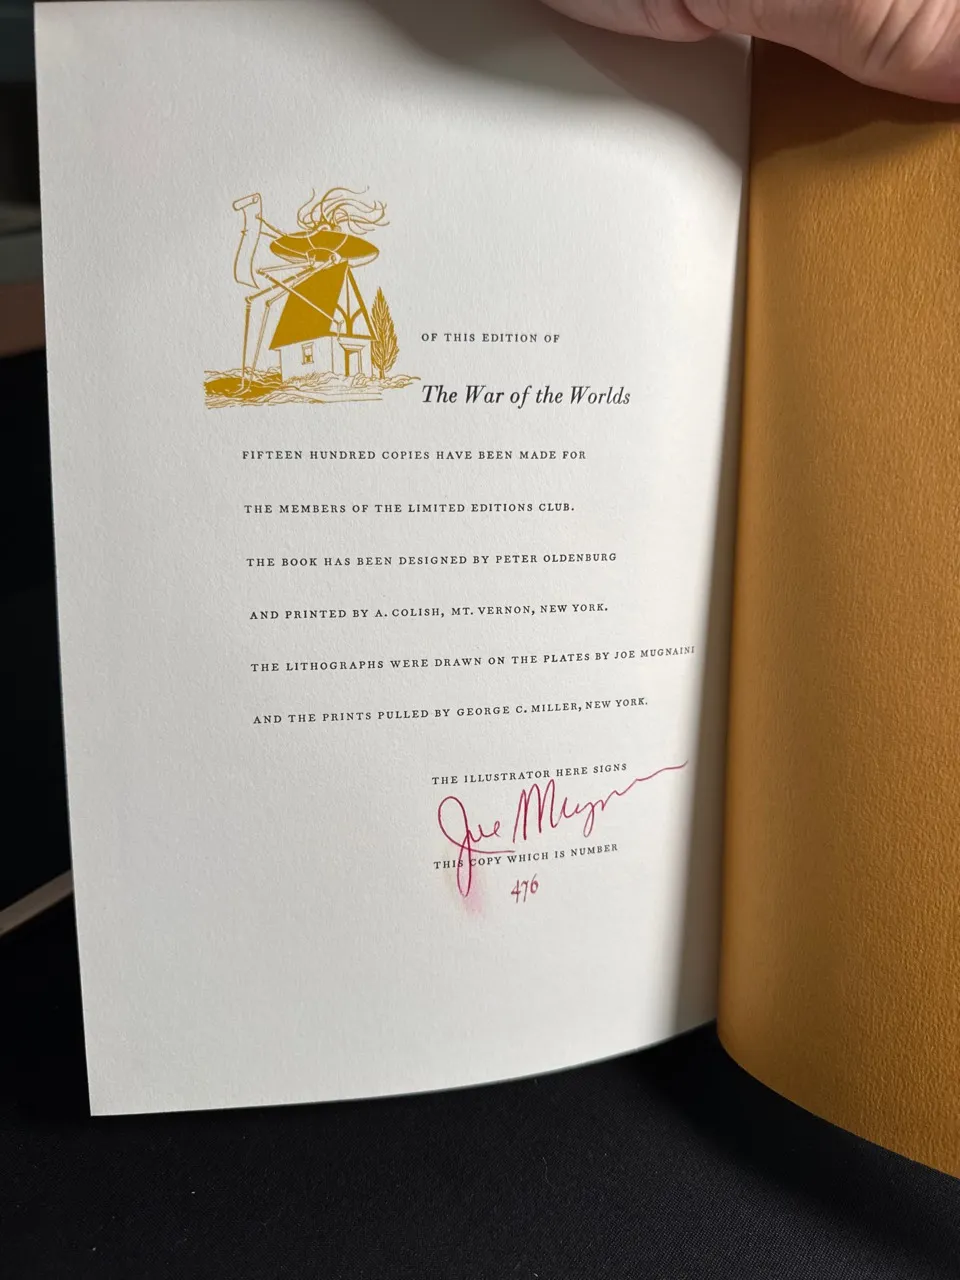 OF THIS EDITION OF
The War of the Worlds
FIFTEEN HUNDRED COPIES HAVE BEEN MADE FOR
THE MEMBERS OF THE LIMITED EDITIONS CLUB.
THE BOOK HAS BEEN DESIGNED BY PETER OLDENBURG
AND PRINTED BY A. COLISH, MT. VERNON, NEW YORK.
THE LITHOGRAPHS WERE DRAWN ON THE PLATES BY JOE MUGNAINI
AND THE PRINTS PULLED BY GEORGE C. MILLER, NEW YORK.
THE ILLUSTRATOR HERE SIGNS
Joe Mugnaini
THIS COPY WHICH IS NUMBER
476